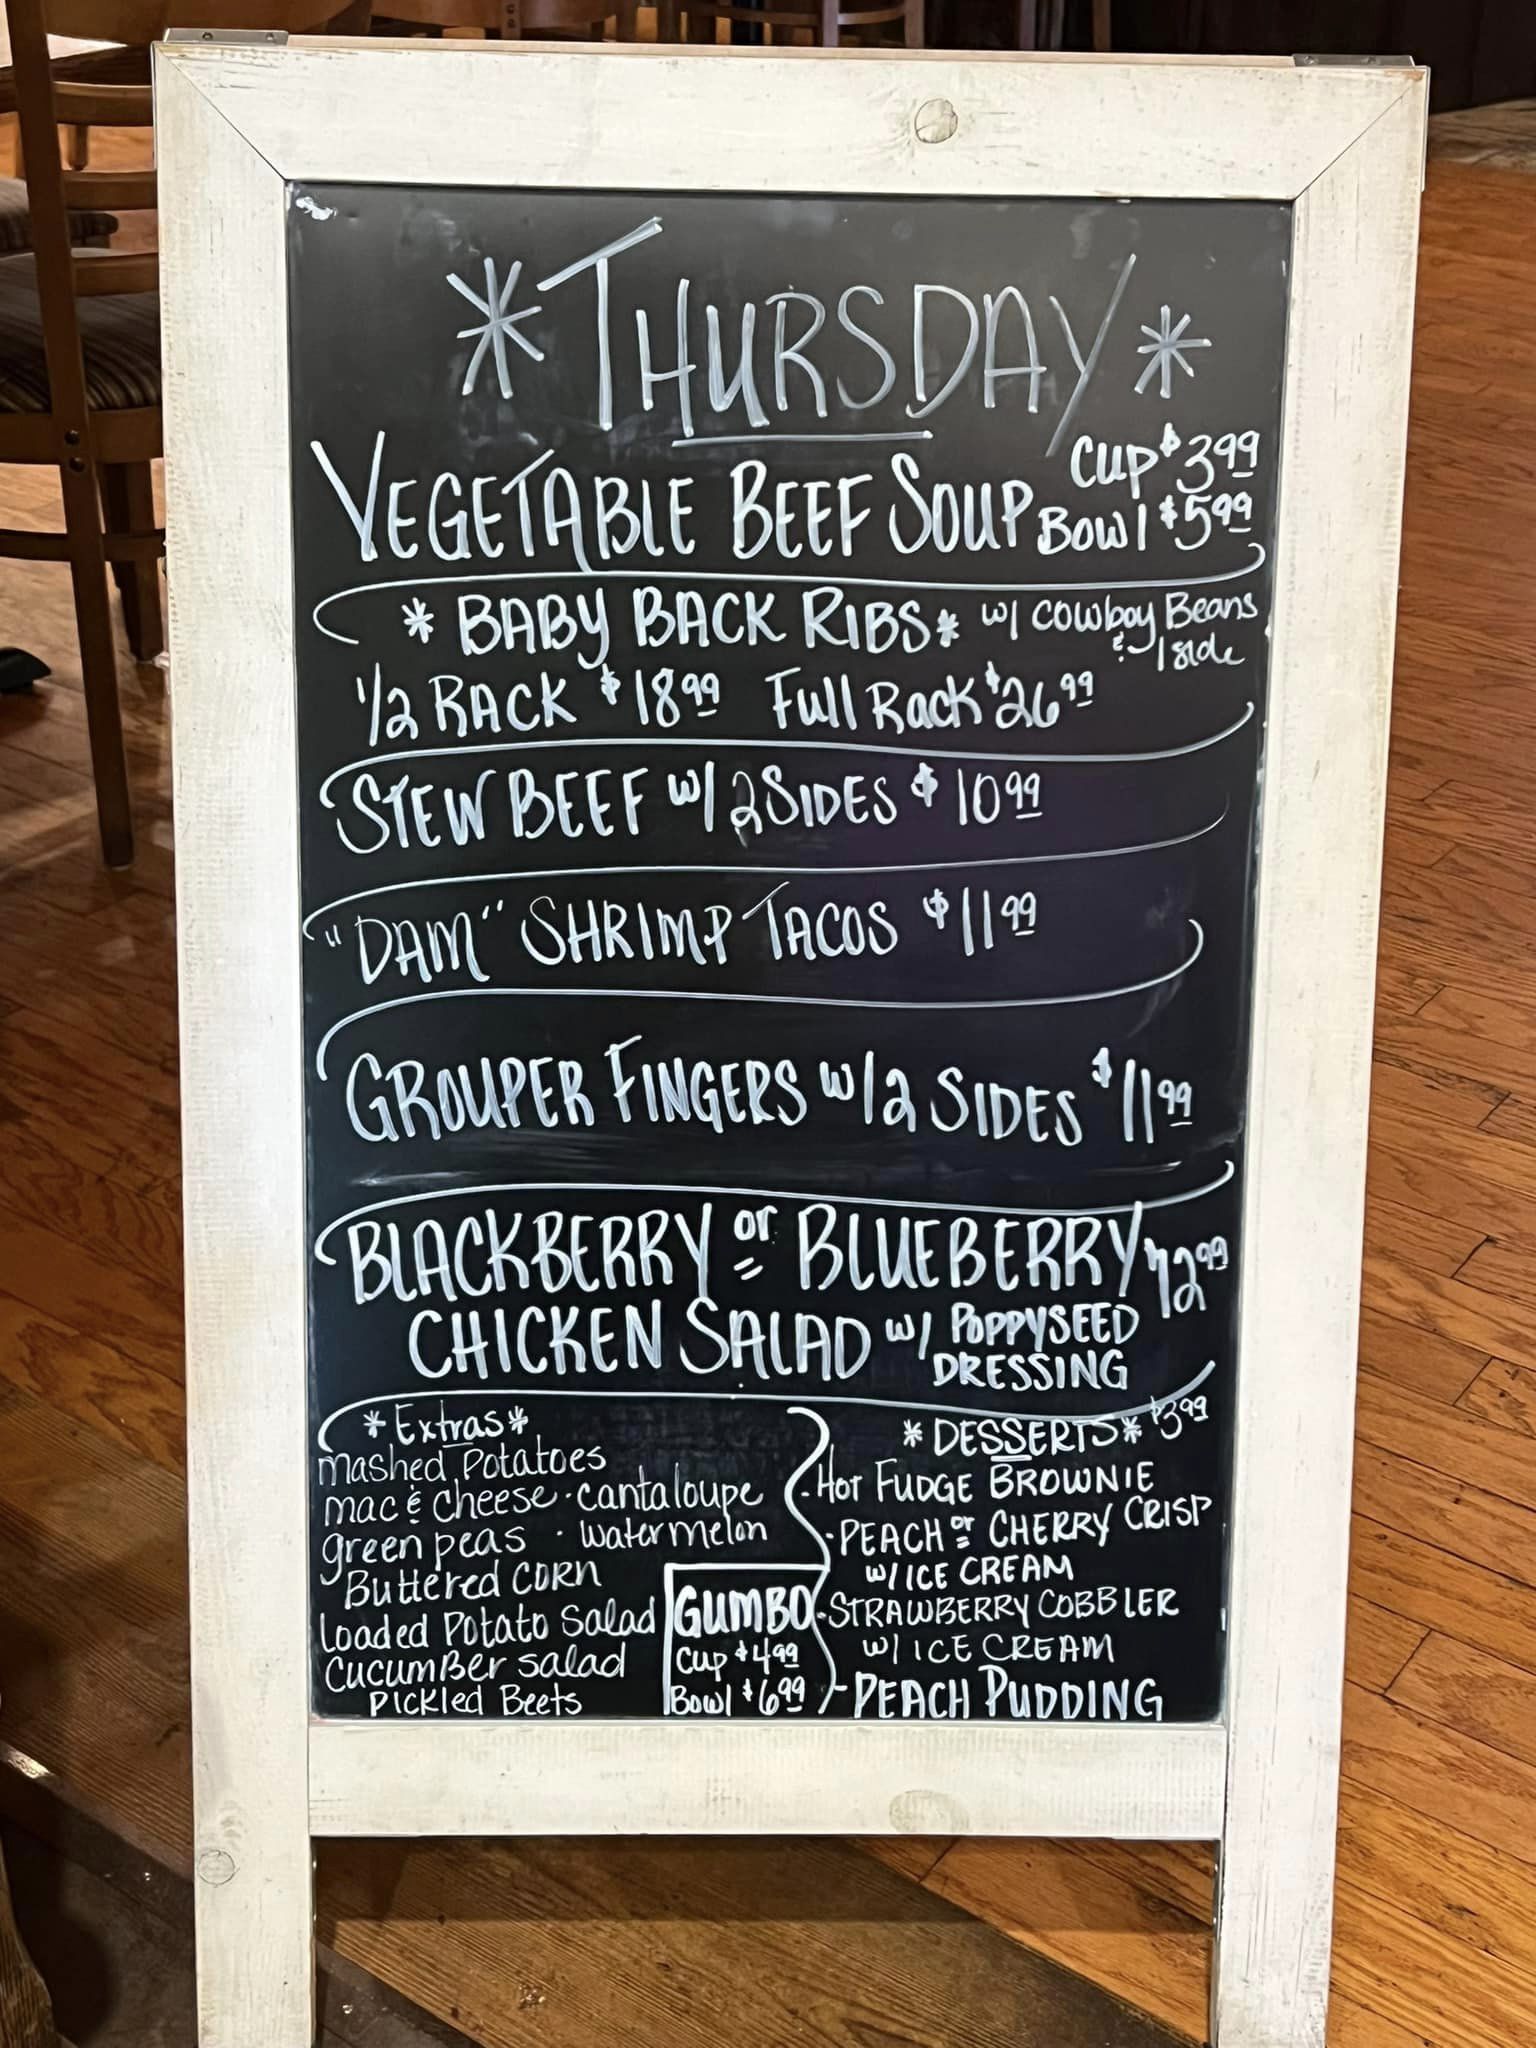 * THURSDAY *
VEGETABLE BEEF SOUP Cup $3.99
Bowl $5.99
* BABY BACK RIBS * w/ Cowboy Beans
& 1 side
1/2 RACK $18.99 Full Rack $26.99
STEW BEEF w/ 2 SIDES $10.99
"DAM" SHRIMP TACOS $11.99
GROUPER FINGERS w/ 2 SIDES $11.99
BLACKBERRY or BLUEBERRY $12.99
CHICKEN SALAD w/ POPPYSEED
DRESSING
* Extras *
Mashed Potatoes
mac & cheese · cantaloupe
green peas · watermelon
Buttered CORN
Loaded Potato Salad
Cucumber salad
Pickled Beets
GUMBO
Cup $4.99
Bowl $6.99
* DESSERTS * $3.99
· HOT FUDGE BROWNIE
· PEACH or CHERRY CRISP
w/ ICE CREAM
· STRAWBERRY COBBLER
w/ ICE CREAM
- PEACH PUDDING